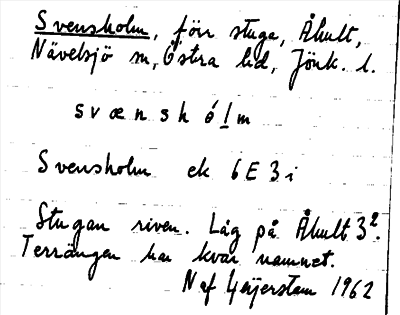 Svensholm, förr stuga, Åhult,
Nävelsjö sn, Östra hd, Jönk. l.
svænshólm
Svensholm ek 6E 3i
Stugan riven. Låg på Åhult 3².
Terrängen har kvar namnet.
N af Geijerstam 1962